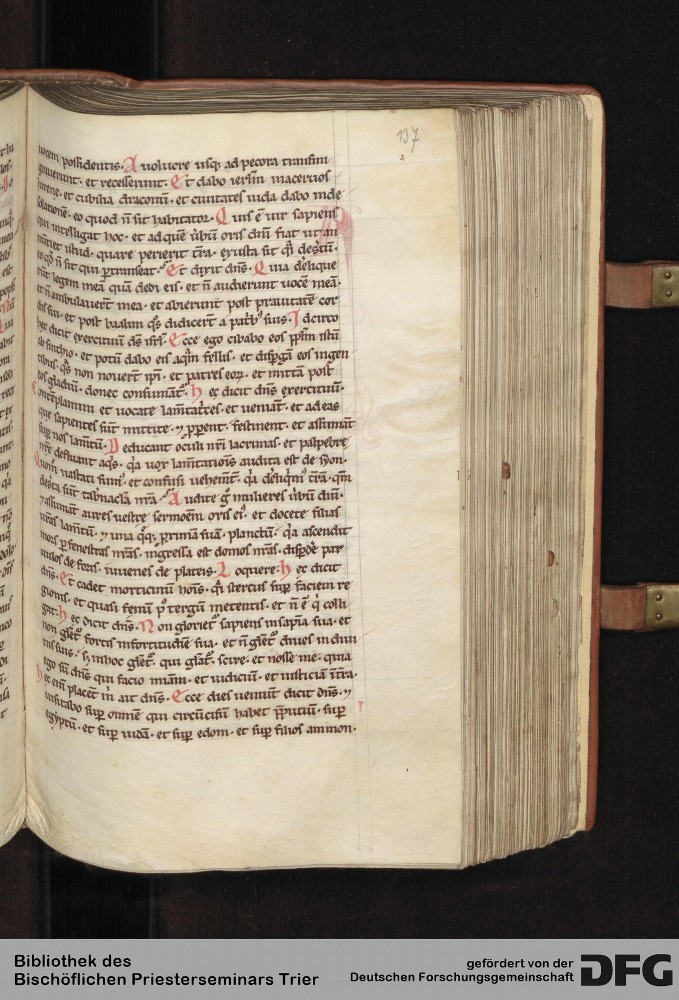 137
uocem possidentis. A uolucre usq; ad pecora transmi
grauerunt. et recesserunt. Et dabo ierl'm in aceruos
harene. et cubilia draconum. et ciuitates iuda dabo in de
solatione. eo quod n̄ sit habitator. Quis ē uir sapiens
qui intelligat hoc. et ad quē ūbū oris dn̄i fiat ut an
nūtiet istud. quare perierit t̄ra. exusta sit q̄i des̄tū.
eo qđ n̄ sit qui ꝑtranseat. Et dixit dn̄s. Quia deliq̄e
rūt legem meā quā dedi eis. et n̄ audierunt uocē meā.
et n̄ ambulauerūt in ea. et abierunt post prauitatē cor
dis sui. et post baalim q̄s didicerūt a patb; suis. Idcirco
hec dicit exercituū ds̄ isrl. Ecce ego cibabo eos ppl'm istū
absinthio. et potū dabo eis aq̄m fellis. et disꝑgā eos in gen
tibus. q̄s non nouerūt ipi. et patres eoꝝ. et mittā post
eos gladiū. donec consumāt. Hec dicit dn̄s exercituū.
Contēplamini et uocate lam̄tat̄ces. et ueniāt. et ad eas
que sapientes sūt mittite. ⁊ ꝓperent. festinent. et assumāt
suꝑ nos lam̄tū. Deducant oculi nr̄i lacrimas. et palpebre
nr̄e defluant aq̄s. q̄a uox lam̄tationis audita est de syon.
Quom̄ uastati sum'. et confusi uehem̄t. q̄a deliq̄m' t̄ra. q̄m
deiecta sūt tabn̄acl'a nr̄a. Audite g̊ mulieres ūbū dn̄i.
⁊ assumāt aures uestre sermoēm oris ei'. et docete filias
ur̄as lam̄tū. ⁊ una q̄q; ꝓximā suā. planctū. q̄a ascendit
mors ꝑ fenestras nr̄as. ingressa est domos nr̄as. disꝑdē par
uulos de foris. iuuenes de plateis. Loquere. hec dicit
dn̄s. et cadet morticinū hoīs. q̄i stercus suꝑ faciem re
gionis. et quasi fenū p' tergū metentis. et n̄ ē q̇ colli
gat. Hec dicit dn̄s. Non gloriet' sapiens in sap̄ia sua. et
non gl'et' fortis in fortitudine sua. et n̄ gl'et' diues in diuiti
is suis. s; in hoc gl'et'. qui gl'at'. scire. et nosse me. quia
ego sū dn̄s qui facio mīam. et iudiciū. et iusticiā in t̄ra.
Hec enī placēt m̄ ait dn̄s. Ecce dies ueniūt dicit dn̄s. ⁊
uisitabo suꝑ omnē qui circūcisū habet p̄putiū. suꝑ
egyptū. et suꝑ iudā. et suꝑ edom. et suꝑ filios ammon.
Bibliothek des
Bischöflichen Priesterseminars Trier
gefördert von der
Deutschen Forschungsgemeinschaft
DFG